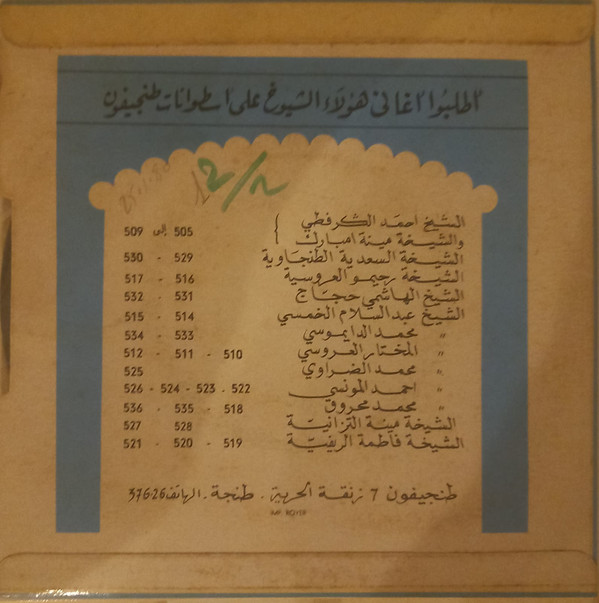 اطلبوا اغاني هؤلاء الشيوخ على اسطوانات طنجيفون
12/2
الشيخ احمد الگرفطي
والشيخة مينة امبارك } 505 الى 509
الشيخة السعدية الطنجاوية 529 - 530
الشيخة رحيمو العروسية 516 - 517
الشيخ الهاشمي حجاج 531 - 532
الشيخ عبد السلام الخمسي 514 - 515
" محمد الدايموسي 533 - 534
" المختار العروسي 510 - 511 - 512
" محمد الضراوي 525
" احمد المونسي 522 - 523 - 524 - 526
" محمد محروق 518 - 535 - 536
الشيخة مينة التزانية 528 527
الشيخة فاطمة الريفية 519 - 520 - 521
طنجيفون 7 زنقة الحرية . طنجة . الهاتف 37626